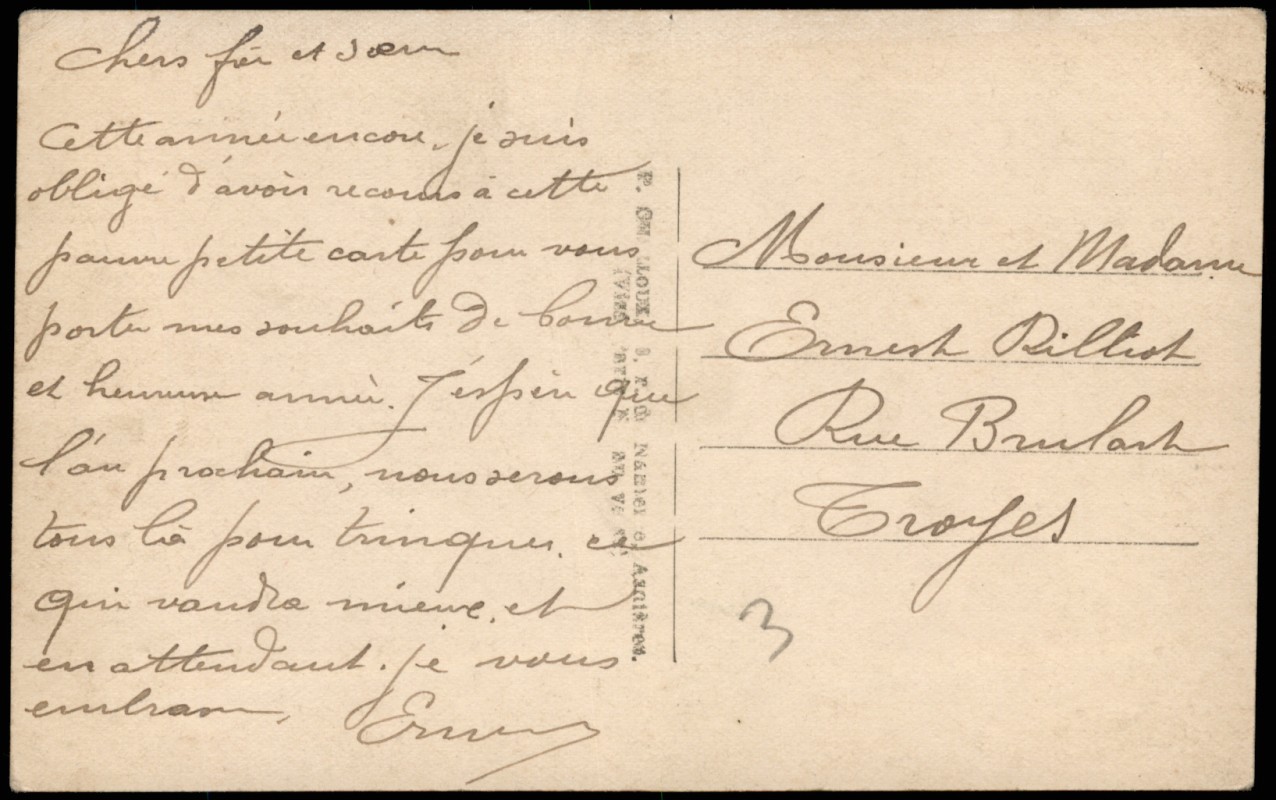 Chers frère et sœur
Cette année encore, je suis
obligé d'avoir recours à cette
pauvre petite carte pour vous
porter mes souhaits de bonne
et heureuse année. J'espère que
l'an prochain, nous serons
tous là pour trinquer, ce
qui vaudra mieux, et
en attendant, je vous
embrasse,
Monsieur et Madame
Ernest Rilliot
Rue Brulart
Troyes
3
Asnières.